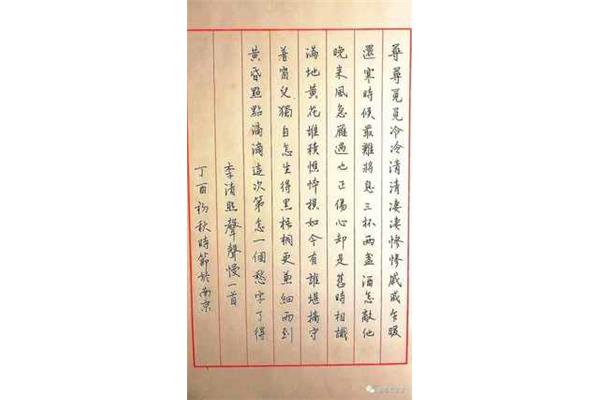 尋尋覓覓冷冷清清淒淒慘慘戚戚乍暖
還寒時候最難將息三杯兩盞酒怎敵他
晚來風急雁過也正傷心卻是舊時相識
滿地黃花堆積憔悴損如今有誰堪摘守
著窗兒獨自怎生得黑梧桐更兼細雨到
黃昏點點滴滴這次第怎一個愁字了得
李清照聲聲慢一首
丁酉初秋時節於南京